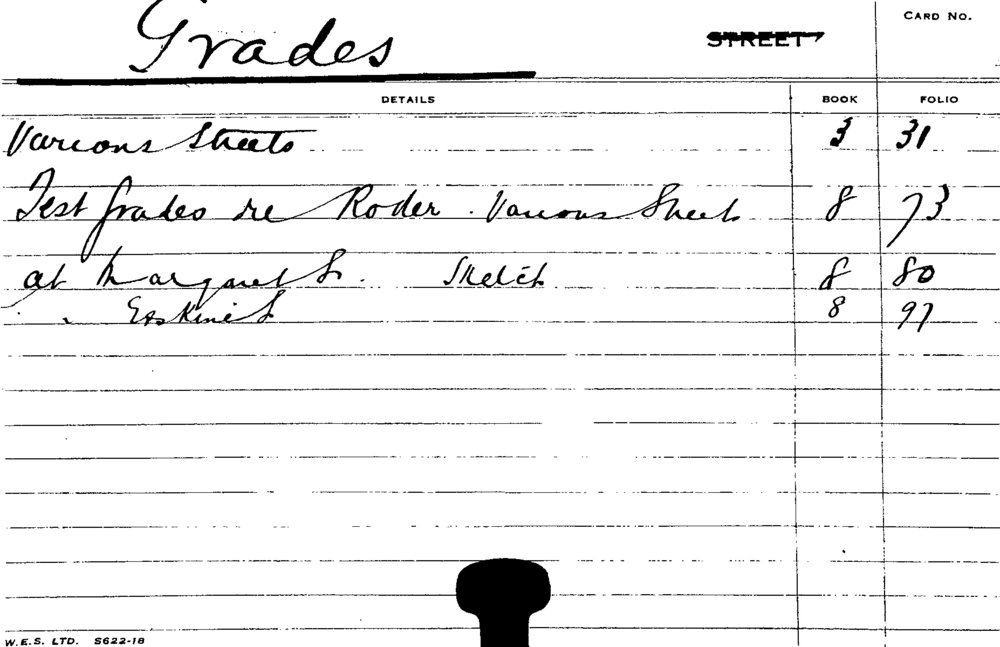 Grades STREET CARD No.
DETAILS BOOK FOLIO
Various Streets 3 31
Test Grades re Roder. Various Streets 8 73
at Margaret St. Sketch 8 80
" " Erskine St 8 97
W.E.S. LTD. S622-18